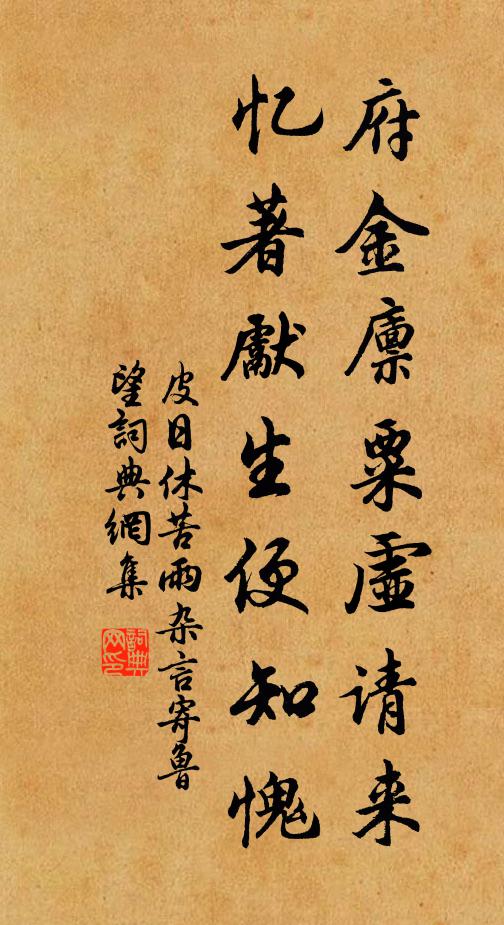 府金廪粟虚请来
忆著獻生便知愧
皮日休苦雨杂言寄鲁
望詞典網集
詞典
网印